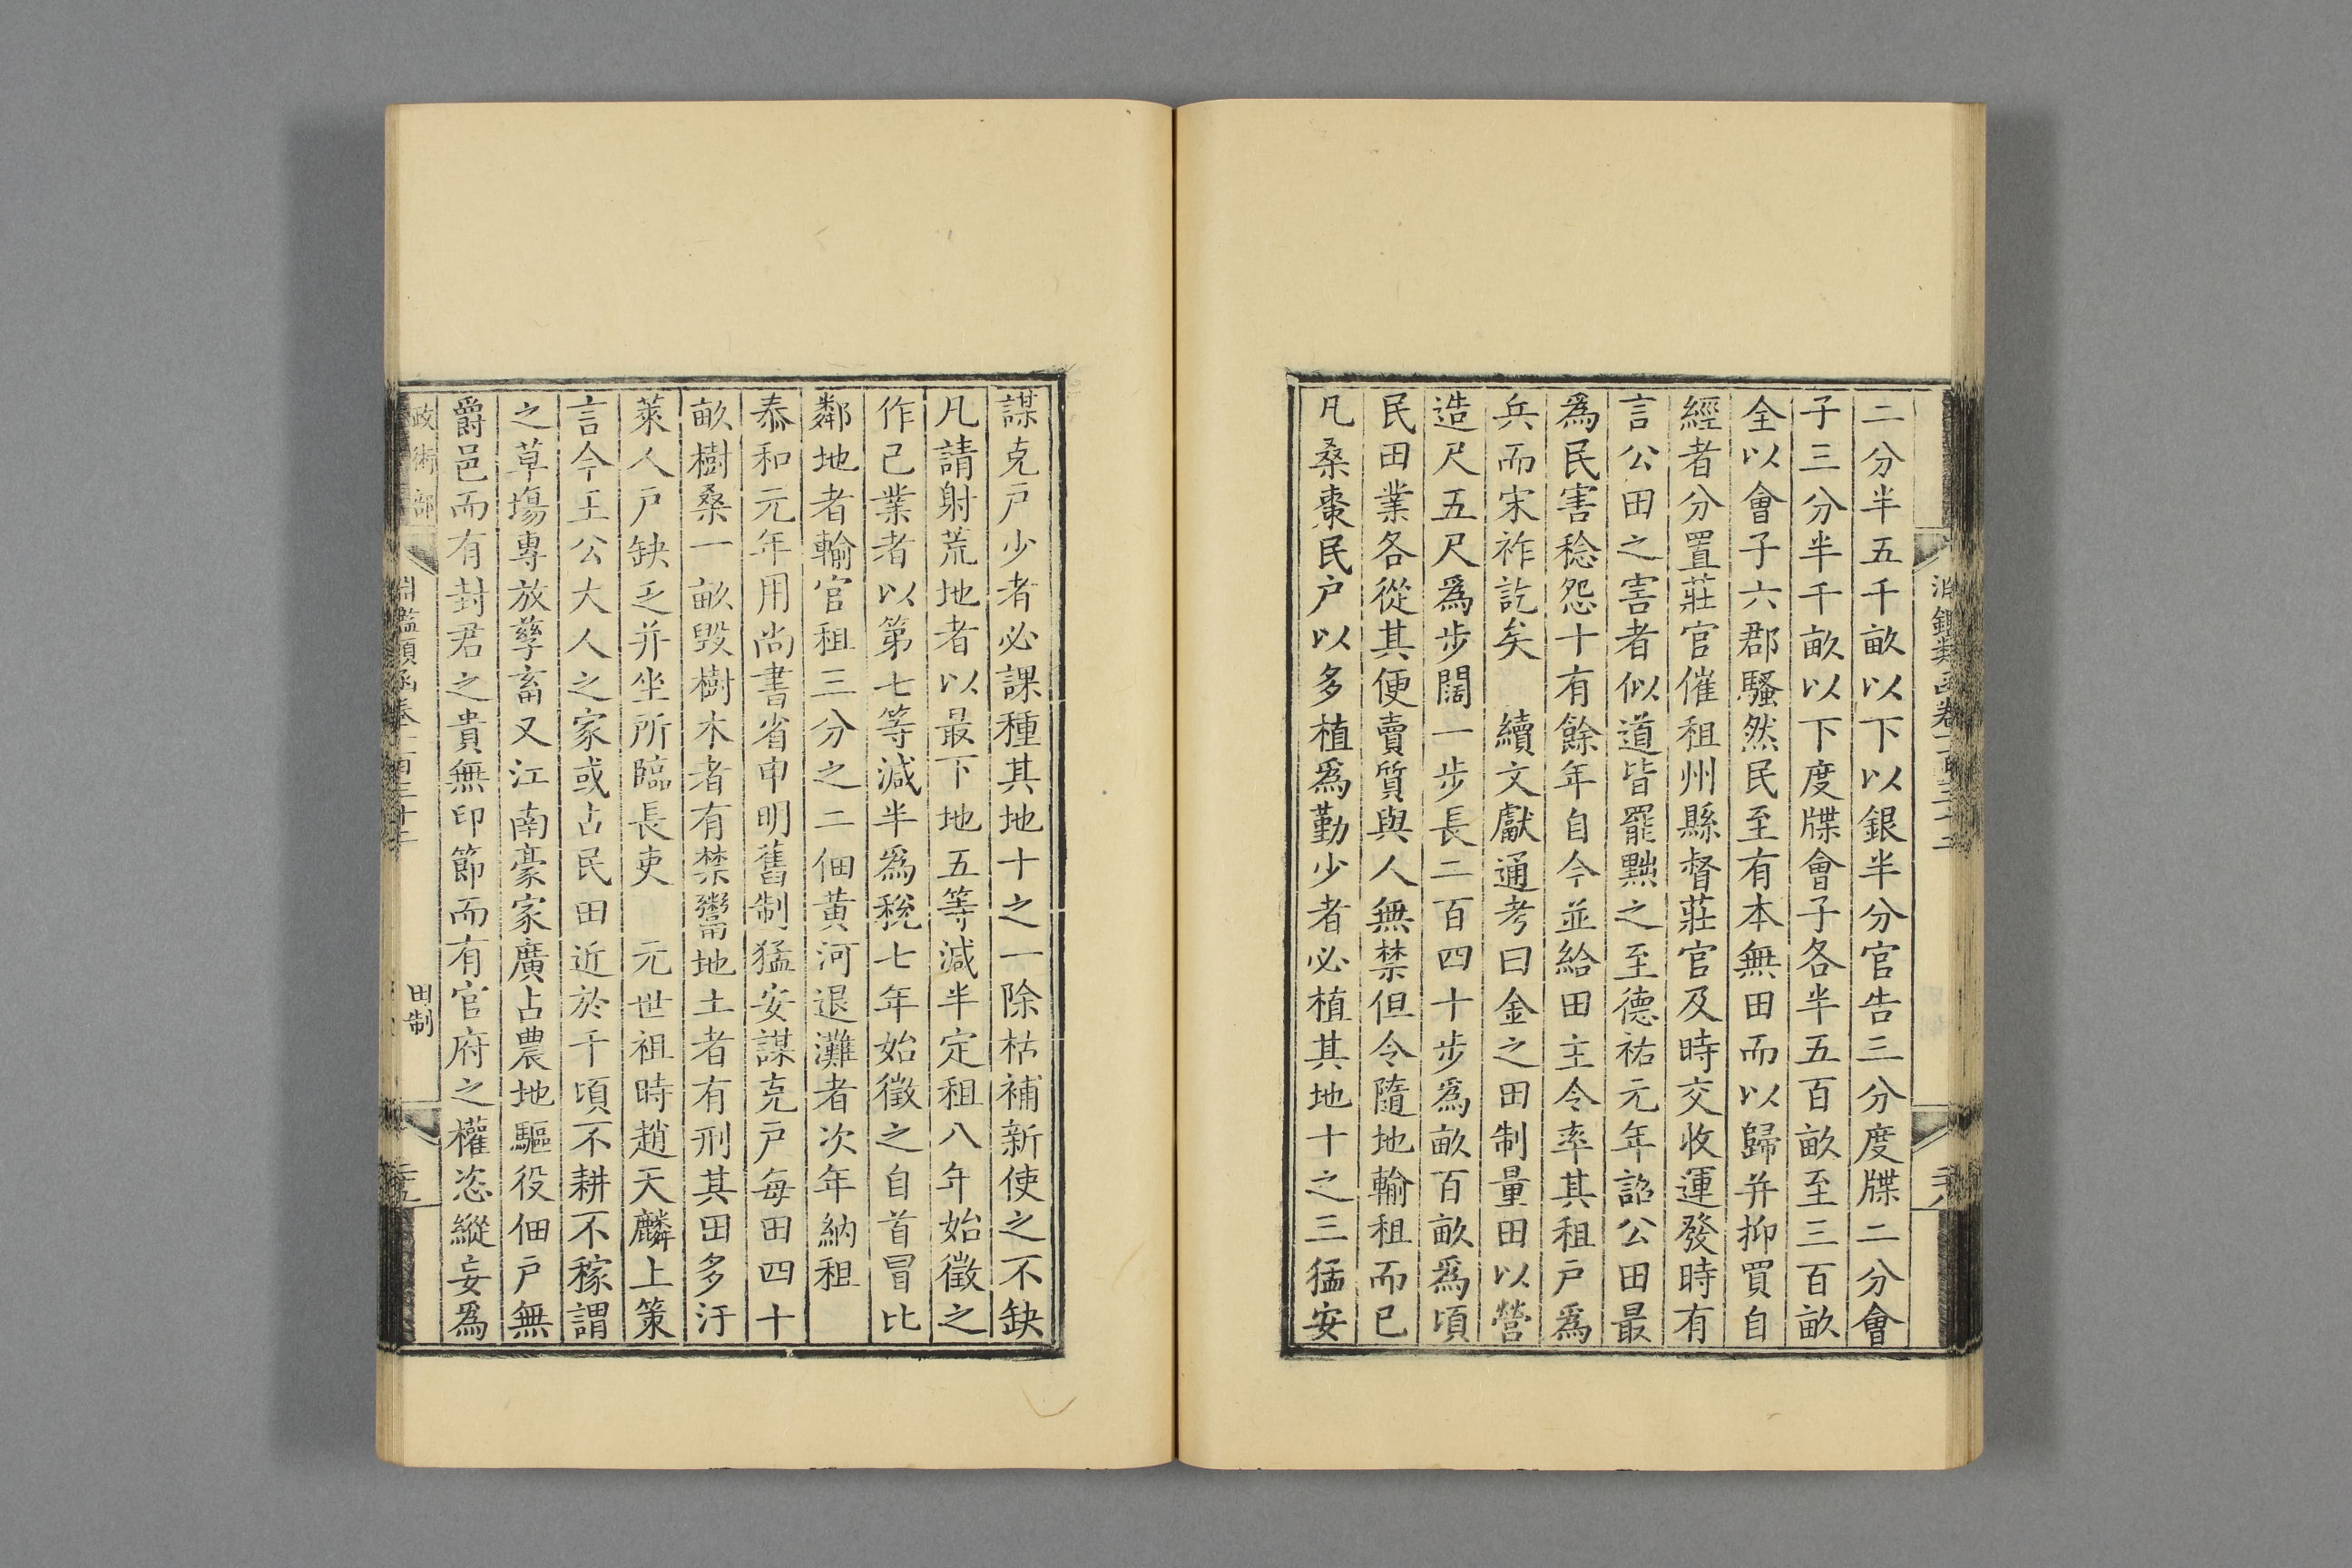 二分半五千畝以下以銀半分官告三分度牒二分會
子三分半千畝以下度牒會子各半五百畝至三百畝
全以會子六郡騷然民至有本無田而以歸并抑買自
經者分置莊官催租州縣督莊官及時交收運發時有
言公田之害者似道皆罷黜之至德祐元年詔公田最
為民害稔怨十有餘年自今並給田主令率其租戶為
兵而宋祚訖矣　續文獻通考曰金之田制量田以營
造尺五尺為步闊一步長二百四十步為畝百畝為頃
民田業各從其便賣質與人無禁但令隨地輸租而已
凡桑棗民戶以多植為勤少者必植其地十之三猛安
謀克戶少者必課種其地十之一除枯補新使之不缺
凡請射荒地者以最下地五等減半定租八年始徵之
作己業者以第七等減半為稅七年始徵之自首冒比
鄰地者輸官租三分之二佃黃河退灘者次年納租
泰和元年用尚書省申明舊制猛安謀克戶每田四十
畝樹桑一畝毀樹木者有禁鬻地土者有刑其田多汙
萊人戶缺乏并坐所臨長吏　元世祖時趙天麟上策
言今王公大人之家或占民田近於千頃不耕不稼謂
之草場專放孳畜又江南豪家廣占農地驅役佃戶無
爵邑而有封君之貴無印節而有官府之權恣縱妄為
政術部
田制